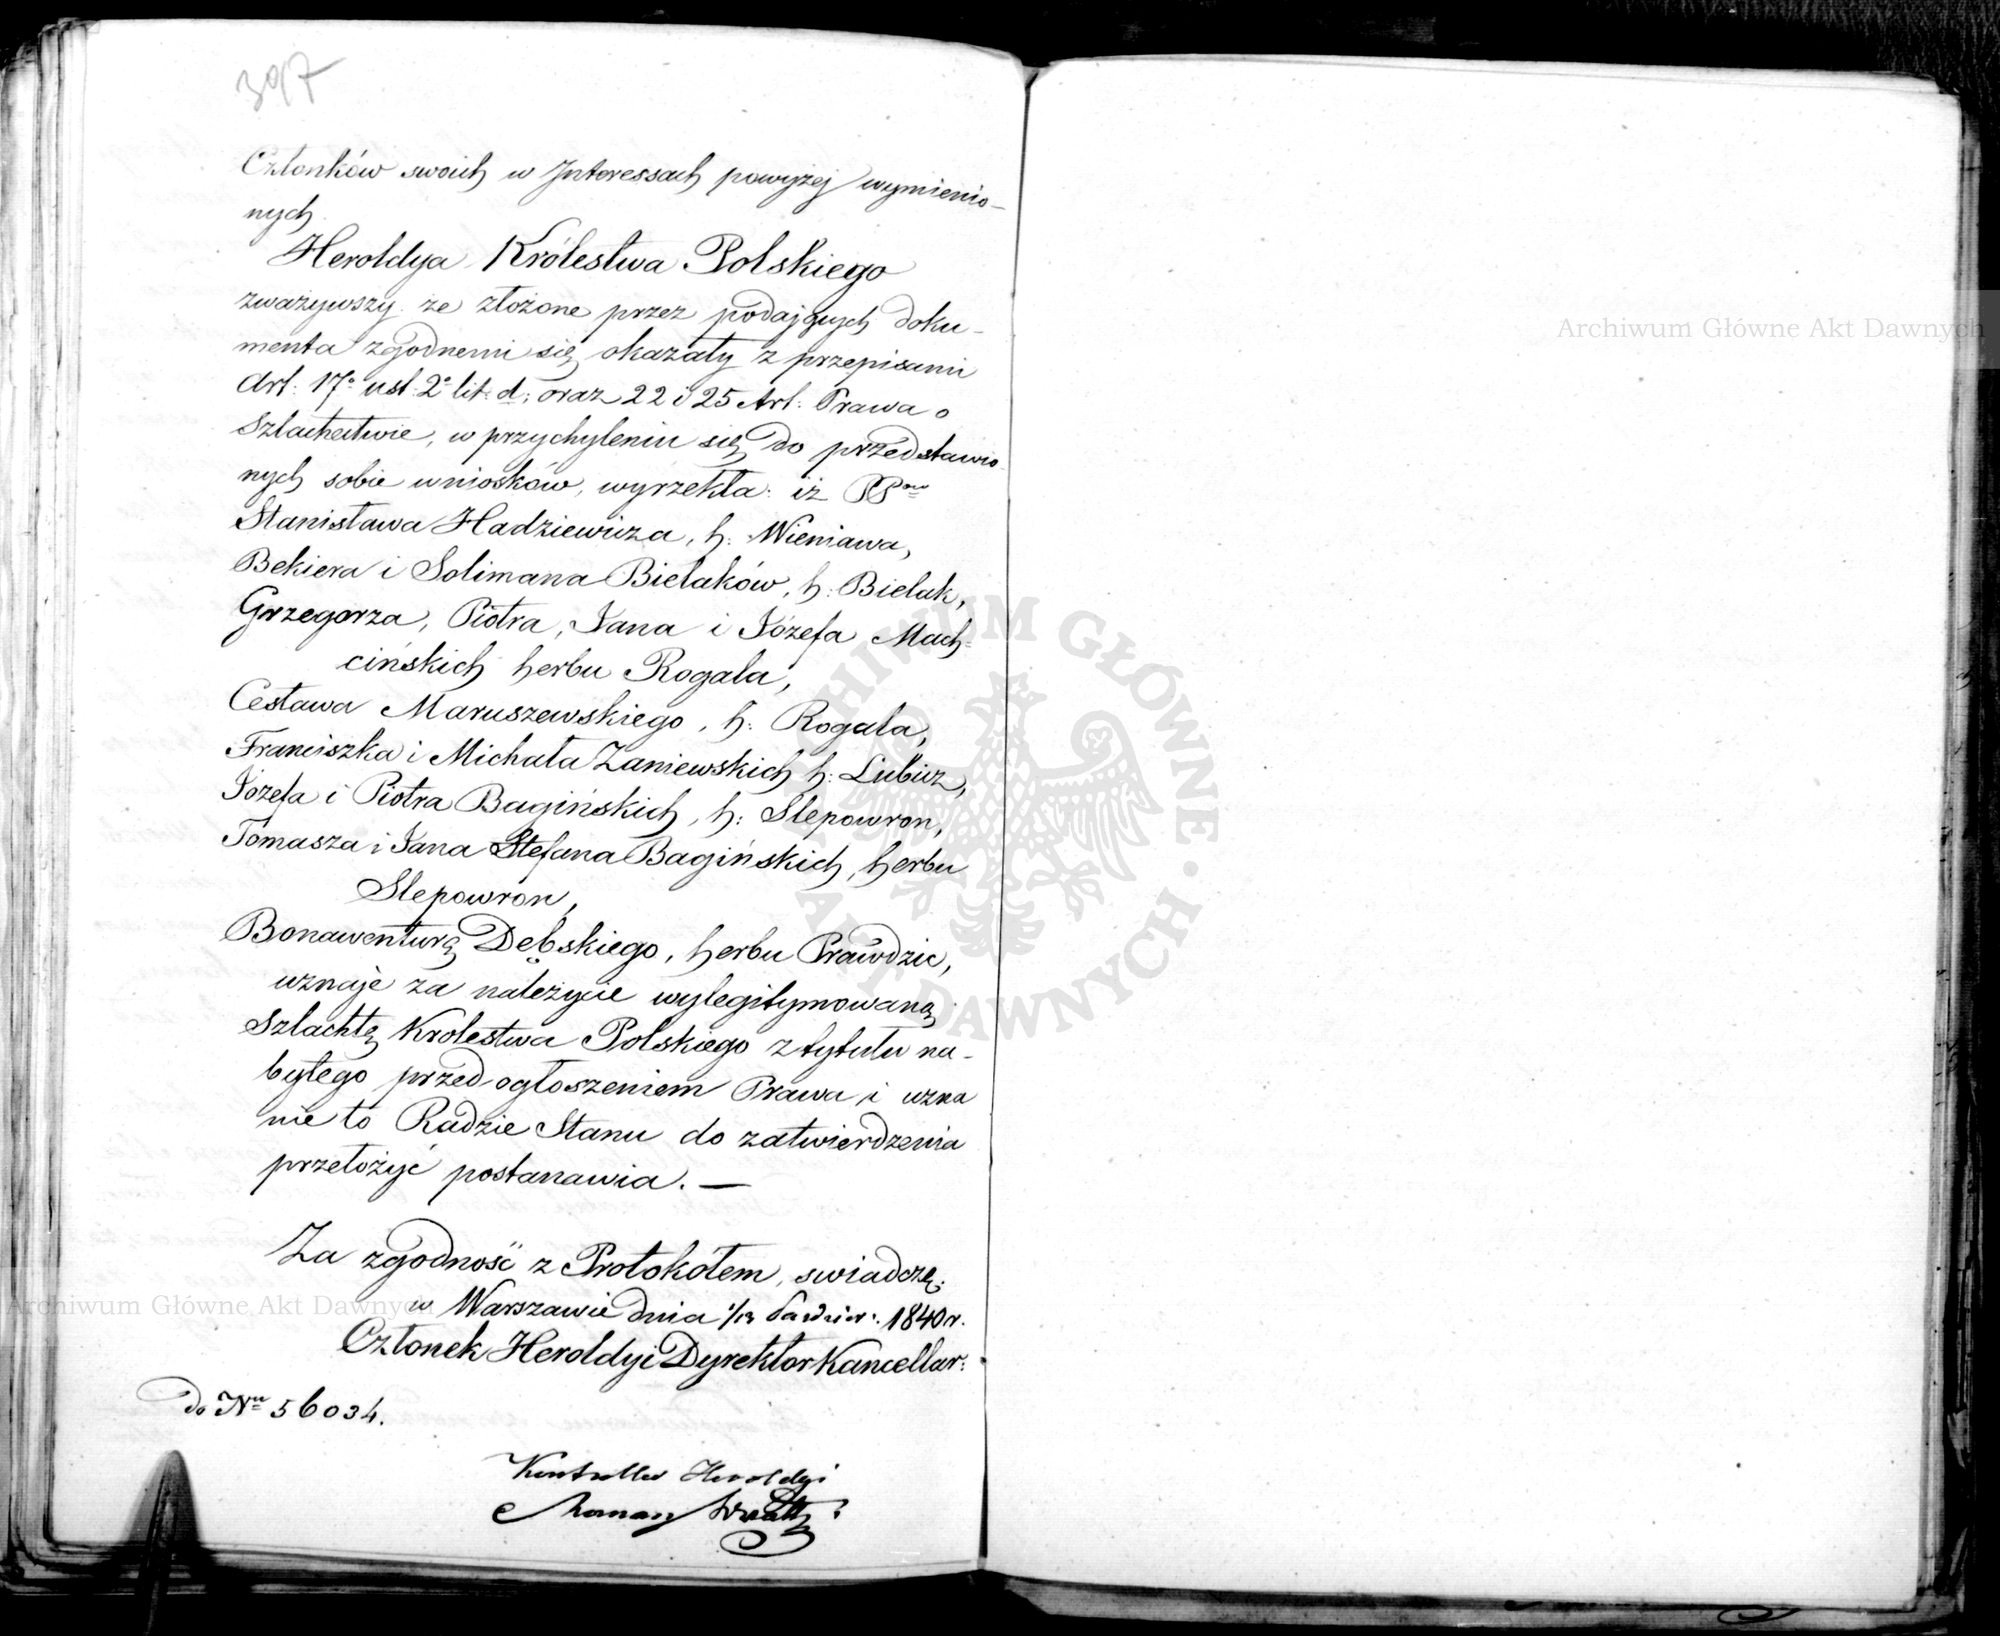 397
Członków swoich w Interessach powyżej wymienio-
nych.
Heroldya Królestwa Polskiego
zważywszy że złożone przez podających doku-
menta zgodnemi się okazały z przepisami
Art: 17° ust. 2° lit: d; oraz 22 i 25 Art: Prawa o
Szlachectwie, w przychyleniu się do przedstawio
nych sobie wniosków, wyrzekła: iż PPow
Stanisława Hadziewicza, h: Wieniawa,
Bekiera i Solimana Bielaków, h: Bielak,
Grzegorza, Piotra, Jana i Józefa Mach-
cińskich herbu Rogala,
Cesława Maruszewskiego, h: Rogala,
Franciszka i Michała Zaniewskich h: Lubicz,
Józefa i Piotra Bagińskich, h: Slepowron,
Tomasza i Jana Stefana Bagińskich, herbu
Slepowron,
Bonawenturę Dębskiego, herbu Prawdzic,
uznaje za należycie wylegitymowaną
Szlachtę Krolestwa Polskiego z tytułu na-
bytego przed ogłoszeniem Prawa i uzna
nie to Radzie Stanu do zatwierdzenia
przełożyć postanawia. —
Za zgodność z Protokółem, swiadczę.
w Warszawie dnia 1/13 Paździer: 1840 r.
Członek Heroldyi Dyrektor Kancellar:
do Nru 56034.
Kontroller Heroldyi
Roman
Archiwum Główne Akt Dawnych
Archiwum Główne Akt Dawnych
ARCHIWUM GŁÓWNE AKT DAWNYCH